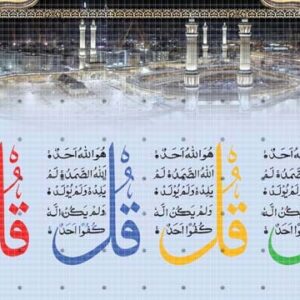 قُلْ
هُوَاللهُ اَحَدٌ
اَللهُ الصَّمَدُ لَمْ
يَلِدْ وَلَمْ يُولَدْ
وَلَمْ يَكُنْ لَّهٗ
كُفُوًا اَحَدٌ
قُلْ
هُوَاللهُ اَحَدٌ
اَللهُ الصَّمَدُ لَمْ
يَلِدْ وَلَمْ يُولَدْ
وَلَمْ يَكُنْ لَّهٗ
كُفُوًا اَحَدٌ
قُلْ
هُوَاللهُ اَحَدٌ
اَللهُ الصَّمَدُ لَمْ
يَلِدْ وَلَمْ يُولَدْ
وَلَمْ يَكُنْ لَّهٗ
كُفُوًا اَحَدٌ
قُلْ